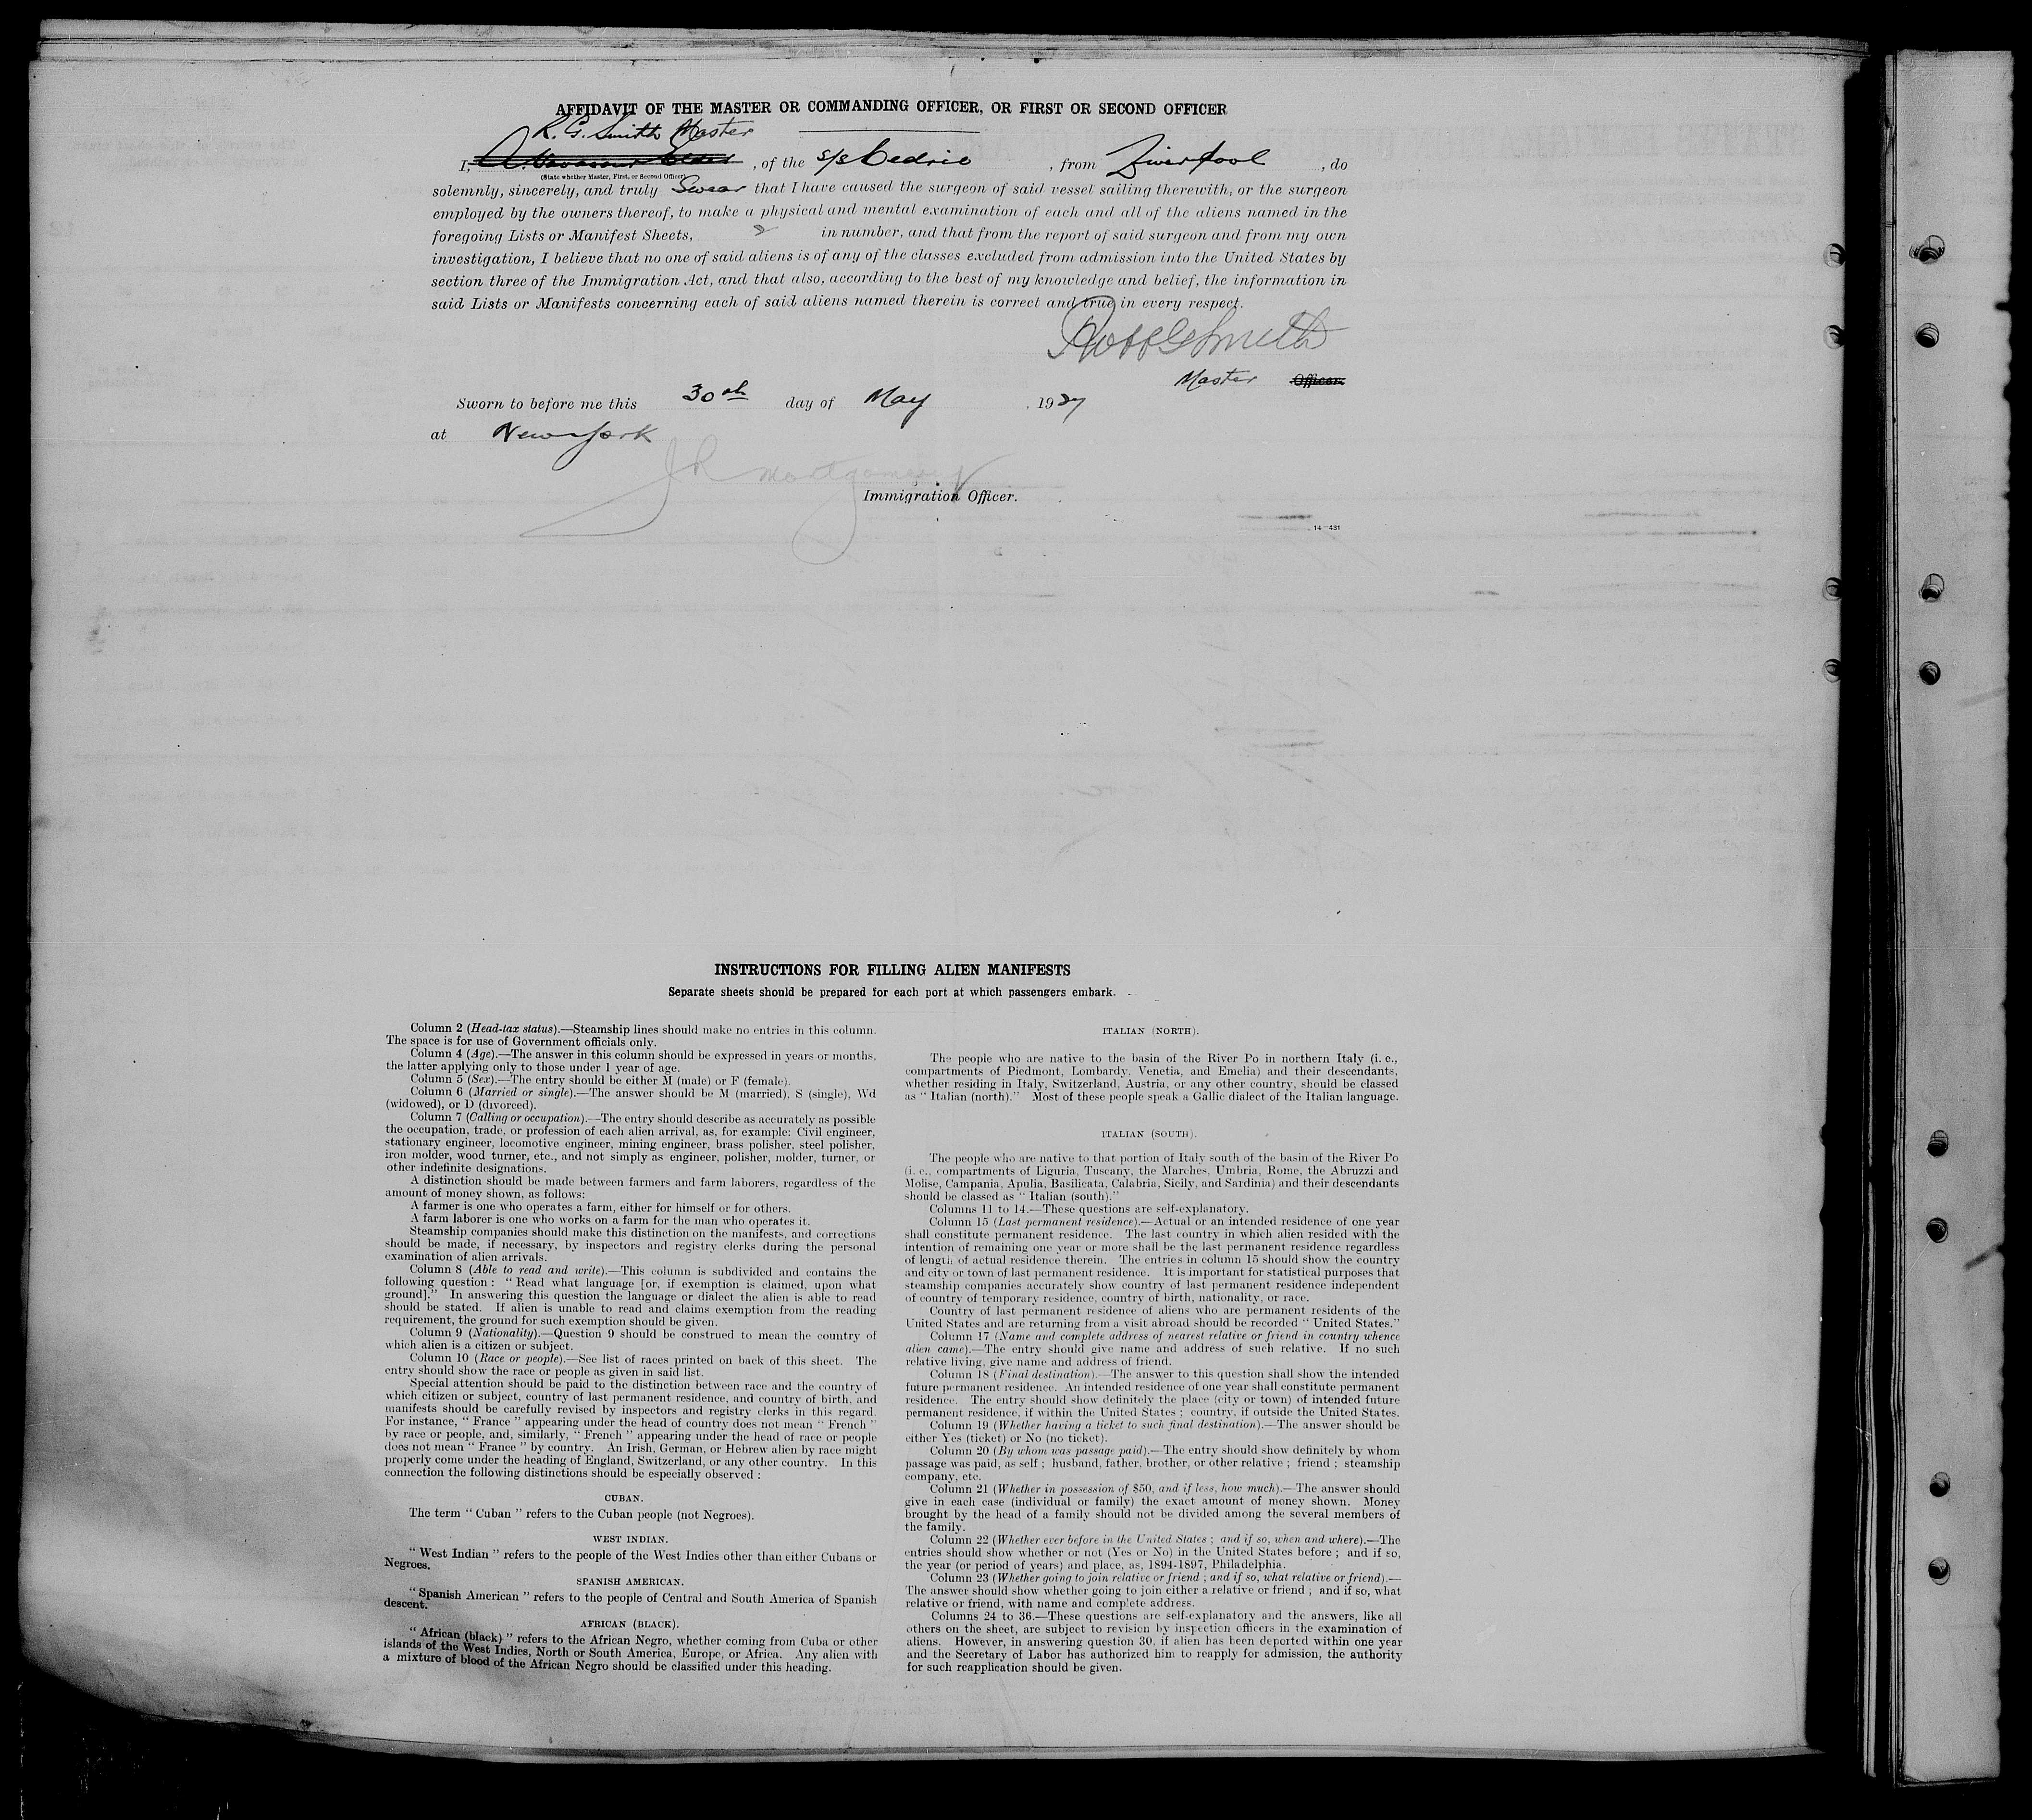 AFFIDAVIT OF THE MASTER OR COMMANDING OFFICER, OR FIRST OR SECOND OFFICER
R. G. Smith Master
I, , of the s/s Cedric , from Liverpool , do
(State whether Master, First, or Second Officer)
solemnly, sincerely, and truly Swear that I have caused the surgeon of said vessel sailing therewith, or the surgeon
employed by the owners thereof, to make a physical and mental examination of each and all of the aliens named in the
foregoing Lists or Manifest Sheets, 2 in number, and that from the report of said surgeon and from my own
investigation, I believe that no one of said aliens is of any of the classes excluded from admission into the United States by
section three of the Immigration Act, and that also, according to the best of my knowledge and belief, the information in
said Lists or Manifests concerning each of said aliens named therein is correct and true in every respect.
Smith
Master Officer.
Sworn to before me this 30th day of May , 1927
at New York
J R Montgomery
Immigration Officer.
14—431
INSTRUCTIONS FOR FILLING ALIEN MANIFESTS
Separate sheets should be prepared for each port at which passengers embark.
Column 2 (Head-tax status).—Steamship lines should make no entries in this column.
The space is for use of Government officials only.
Column 4 (Age).—The answer in this column should be expressed in years or months,
the latter applying only to those under 1 year of age.
Column 5 (Sex).—The entry should be either M (male) or F (female).
Column 6 (Married or single).—The answer should be M (married), S (single), Wd
(widowed), or D (divorced).
Column 7 (Calling or occupation).—The entry should describe as accurately as possible
the occupation, trade, or profession of each alien arrival, as, for example: Civil engineer,
stationary engineer, locomotive engineer, mining engineer, brass polisher, steel polisher,
iron molder, wood turner, etc., and not simply as engineer, polisher, molder, turner, or
other indefinite designations.
A distinction should be made between farmers and farm laborers, regardless of the
amount of money shown, as follows:
A farmer is one who operates a farm, either for himself or for others.
A farm laborer is one who works on a farm for the man who operates it.
Steamship companies should make this distinction on the manifests, and corrections
should be made, if necessary, by inspectors and registry clerks during the personal
examination of alien arrivals.
Column 8 (Able to read and write).—This column is subdivided and contains the
following question : “ Read what language [or, if exemption is claimed, upon what
ground].” In answering this question the language or dialect the alien is able to read
should be stated. If alien is unable to read and claims exemption from the reading
requirement, the ground for such exemption should be given.
Column 9 (Nationality).—Question 9 should be construed to mean the country of
which alien is a citizen or subject.
Column 10 (Race or people).—See list of races printed on back of this sheet. The
entry should show the race or people as given in said list.
Special attention should be paid to the distinction between race and the country of
which citizen or subject, country of last permanent residence, and country of birth, and
manifests should be carefully revised by inspectors and registry clerks in this regard.
For instance, “ France ” appearing under the head of country does not mean “ French ”
by race or people, and, similarly, “ French ” appearing under the head of race or people
does not mean “ France ” by country. An Irish, German, or Hebrew alien by race might
properly come under the heading of England, Switzerland, or any other country. In this
connection the following distinctions should be especially observed :
CUBAN.
The term “ Cuban ” refers to the Cuban people (not Negroes).
WEST INDIAN.
“ West Indian ” refers to the people of the West Indies other than either Cubans or
Negroes.
SPANISH AMERICAN.
“ Spanish American ” refers to the people of Central and South America of Spanish
descent.
AFRICAN (BLACK).
“ African (black) ” refers to the African Negro, whether coming from Cuba or other
islands of the West Indies, North or South America, Europe, or Africa. Any alien with
a mixture of blood of the African Negro should be classified under this heading.
ITALIAN (NORTH).
The people who are native to the basin of the River Po in northern Italy (i. e.,
compartments of Piedmont, Lombardy, Venetia, and Emelia) and their descendants,
whether residing in Italy, Switzerland, Austria, or any other country, should be classed
as “ Italian (north).” Most of these people speak a Gallic dialect of the Italian language.
ITALIAN (SOUTH).
The people who are native to that portion of Italy south of the basin of the River Po
(i. e., compartments of Liguria, Tuscany, the Marches, Umbria, Rome, the Abruzzi and
Molise, Campania, Apulia, Basilicata, Calabria, Sicily, and Sardinia) and their descendants
should be classed as “ Italian (south).”
Columns 11 to 14.—These questions are self-explanatory.
Column 15 (Last permanent residence).—Actual or an intended residence of one year
shall constitute permanent residence. The last country in which alien resided with the
intention of remaining one year or more shall be the last permanent residence regardless
of length of actual residence therein. The entries in column 15 should show the country
and city or town of last permanent residence. It is important for statistical purposes that
steamship companies accurately show country of last permanent residence independent
of country of temporary residence, country of birth, nationality, or race.
Country of last permanent residence of aliens who are permanent residents of the
United States and are returning from a visit abroad should be recorded “ United States.”
Column 17 (Name and complete address of nearest relative or friend in country whence
alien came).—The entry should give name and address of such relative. If no such
relative living, give name and address of friend.
Column 18 (Final destination).—The answer to this question shall show the intended
future permanent residence. An intended residence of one year shall constitute permanent
residence. The entry should show definitely the place (city or town) of intended future
permanent residence, if within the United States ; country, if outside the United States.
Column 19 (Whether having a ticket to such final destination).—The answer should be
either Yes (ticket) or No (no ticket).
Column 20 (By whom was passage paid).—The entry should show definitely by whom
passage was paid, as self ; husband, father, brother, or other relative ; friend ; steamship
company, etc.
Column 21 (Whether in possession of $50, and if less, how much).—The answer should
give in each case (individual or family) the exact amount of money shown. Money
brought by the head of a family should not be divided among the several members of
the family.
Column 22 (Whether ever before in the United States ; and if so, when and where).—The
entries should show whether or not (Yes or No) in the United States before ; and if so,
the year (or period of years) and place, as, 1894-1897, Philadelphia.
Column 23 (Whether going to join relative or friend ; and if so, what relative or friend).—
The answer should show whether going to join either a relative or friend ; and if so, what
relative or friend, with name and complete address.
Columns 24 to 36.—These questions are self-explanatory and the answers, like all
others on the sheet, are subject to revision by inspection officers in the examination of
aliens. However, in answering question 30, if alien has been deported within one year
and the Secretary of Labor has authorized him to reapply for admission, the authority
for such reapplication should be given.